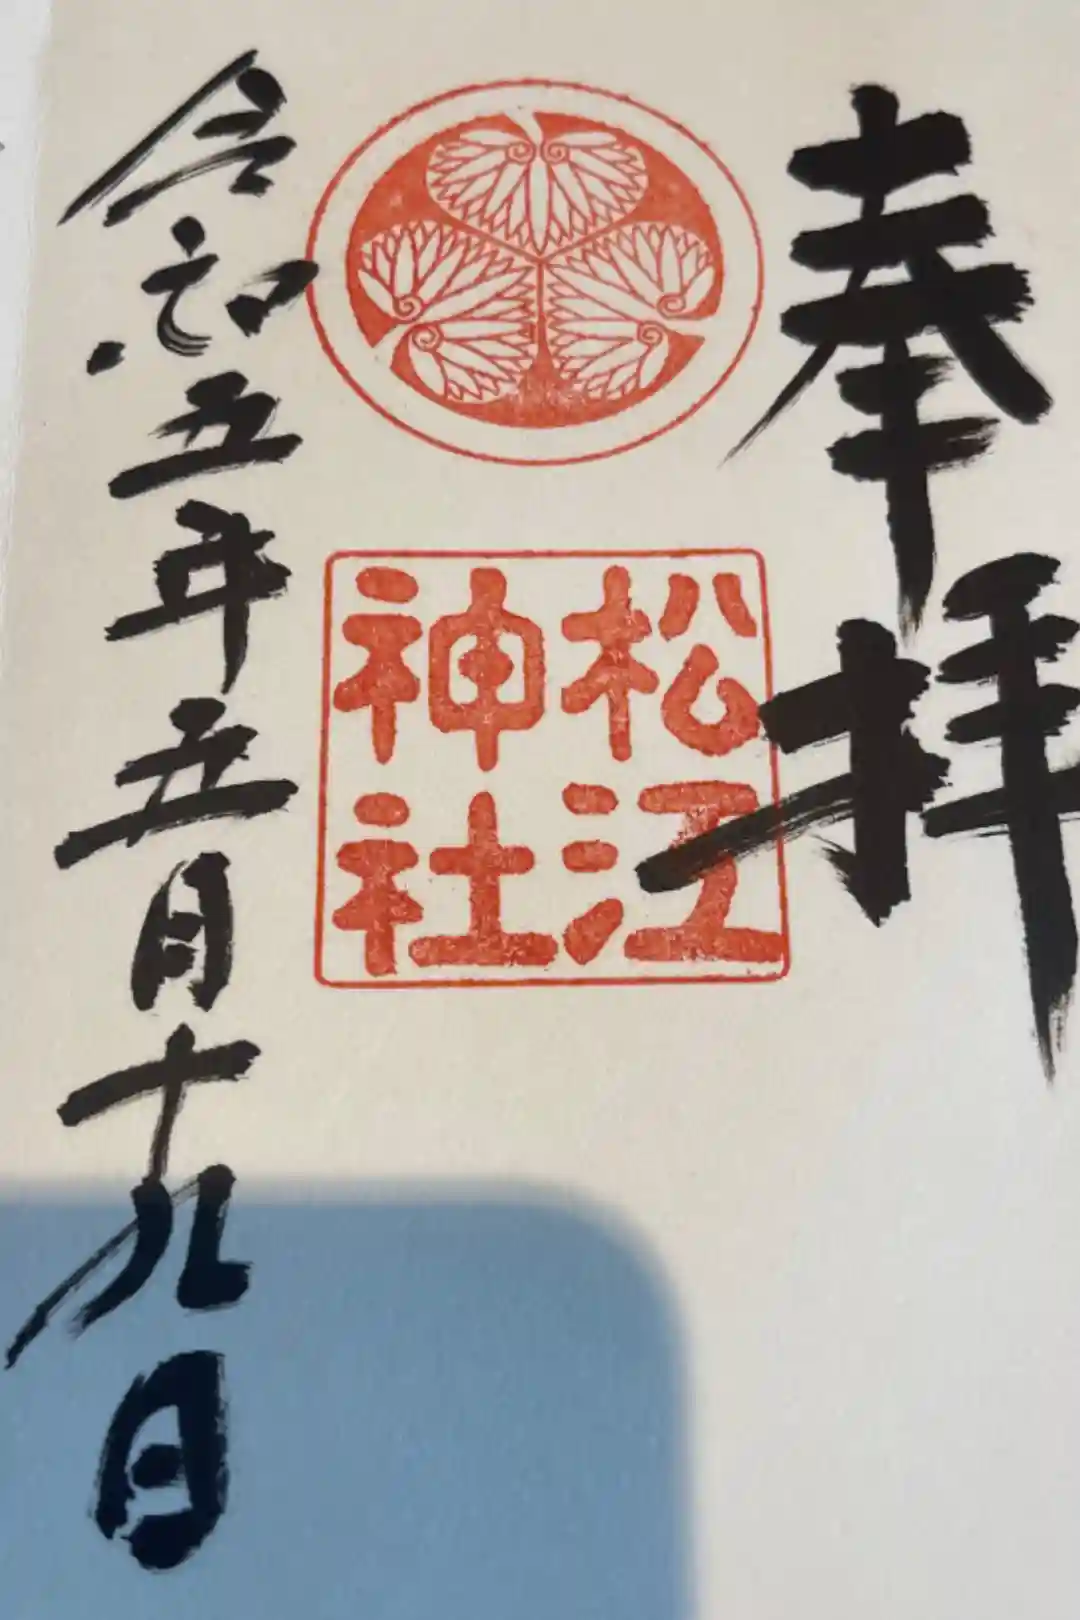 奉拝
松江
神社
令和五年五月十九日